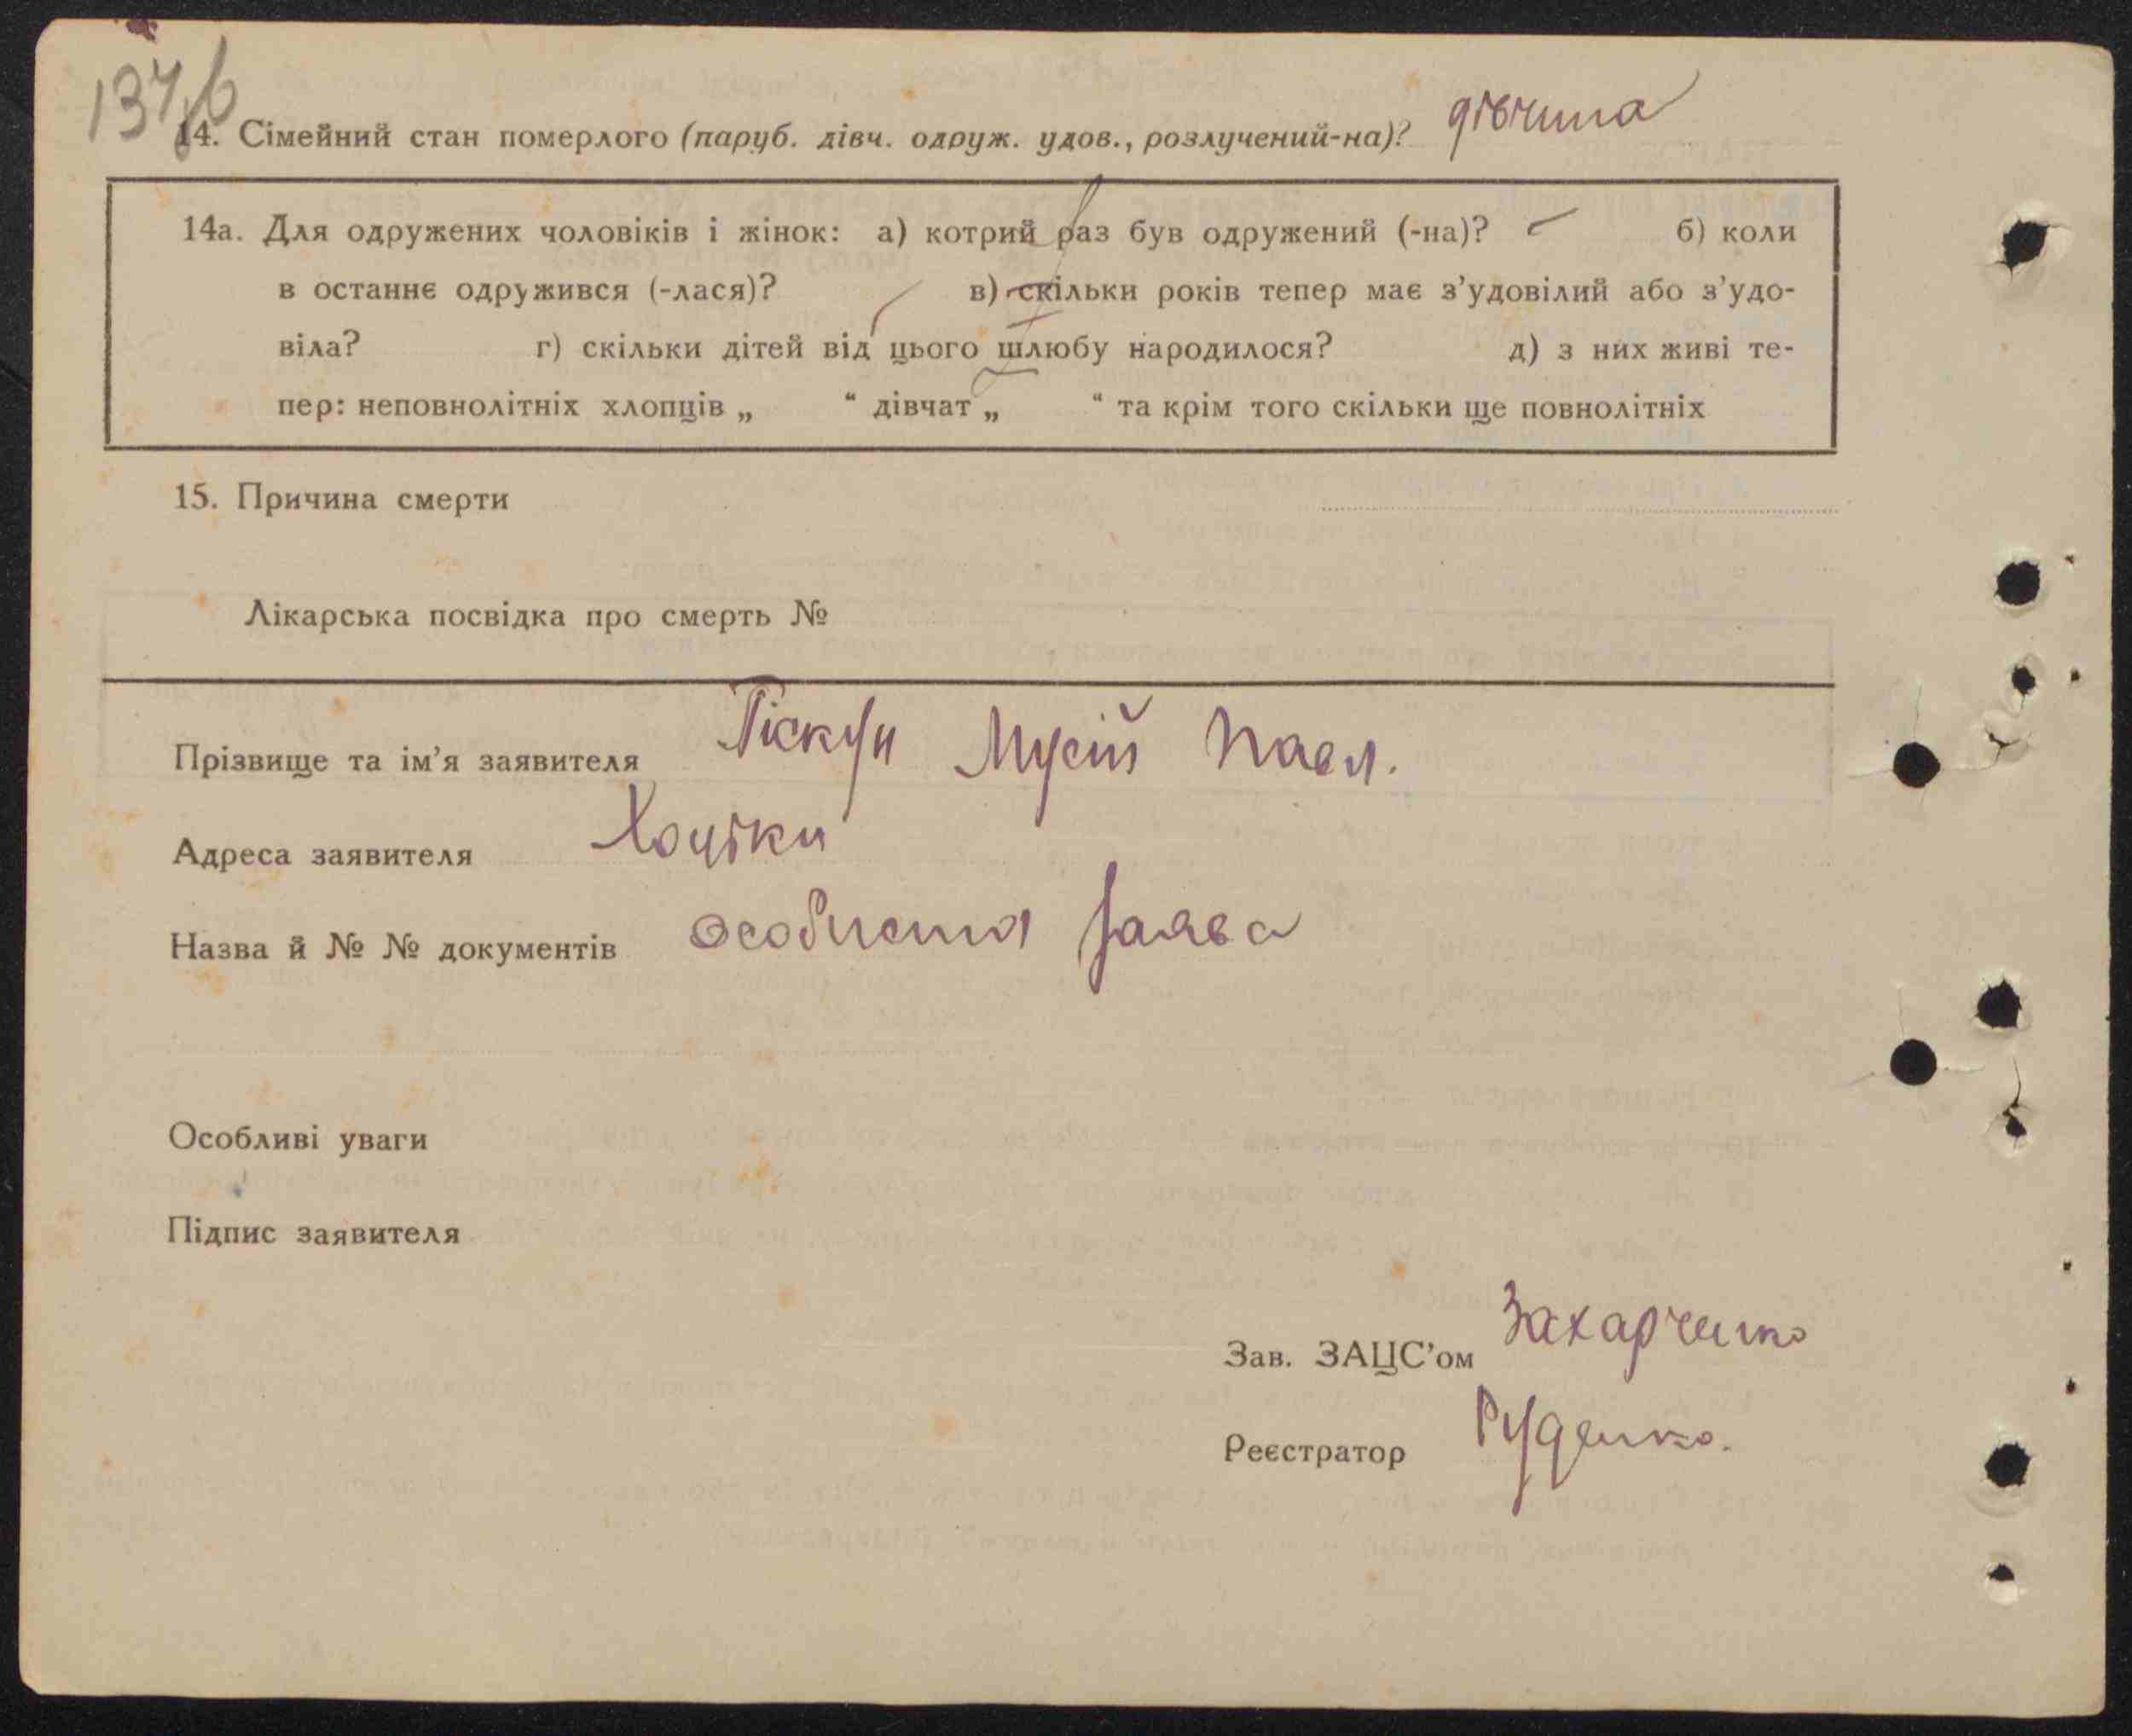 14. Сімейний стан померлого (паруб. дівч. одруж. удов., розлучений-на)? дівчина
14а. Для одружених чоловіків і жінок: а) котрий раз був одружений (-на)? б) коли
в останнє одружився (-лася)? в) скільки років тепер має з’удовілий або з’удо-
віла? г) скільки дітей від цього шлюбу народилося? д) з них живі те-
пер: неповнолітніх хлопців „ “ дівчат „ “ та крім того скільки ще повнолітніх
15. Причина смерти
Лікарська посвідка про смерть №
Прізвище та ім’я заявителя Піскун Мусій Павл.
Адреса заявителя
Назва й № № документів особиста заява
Особливі уваги
Підпис заявителя
Зав. ЗАЦС’ом Захарченко
Реєстратор Руденко.